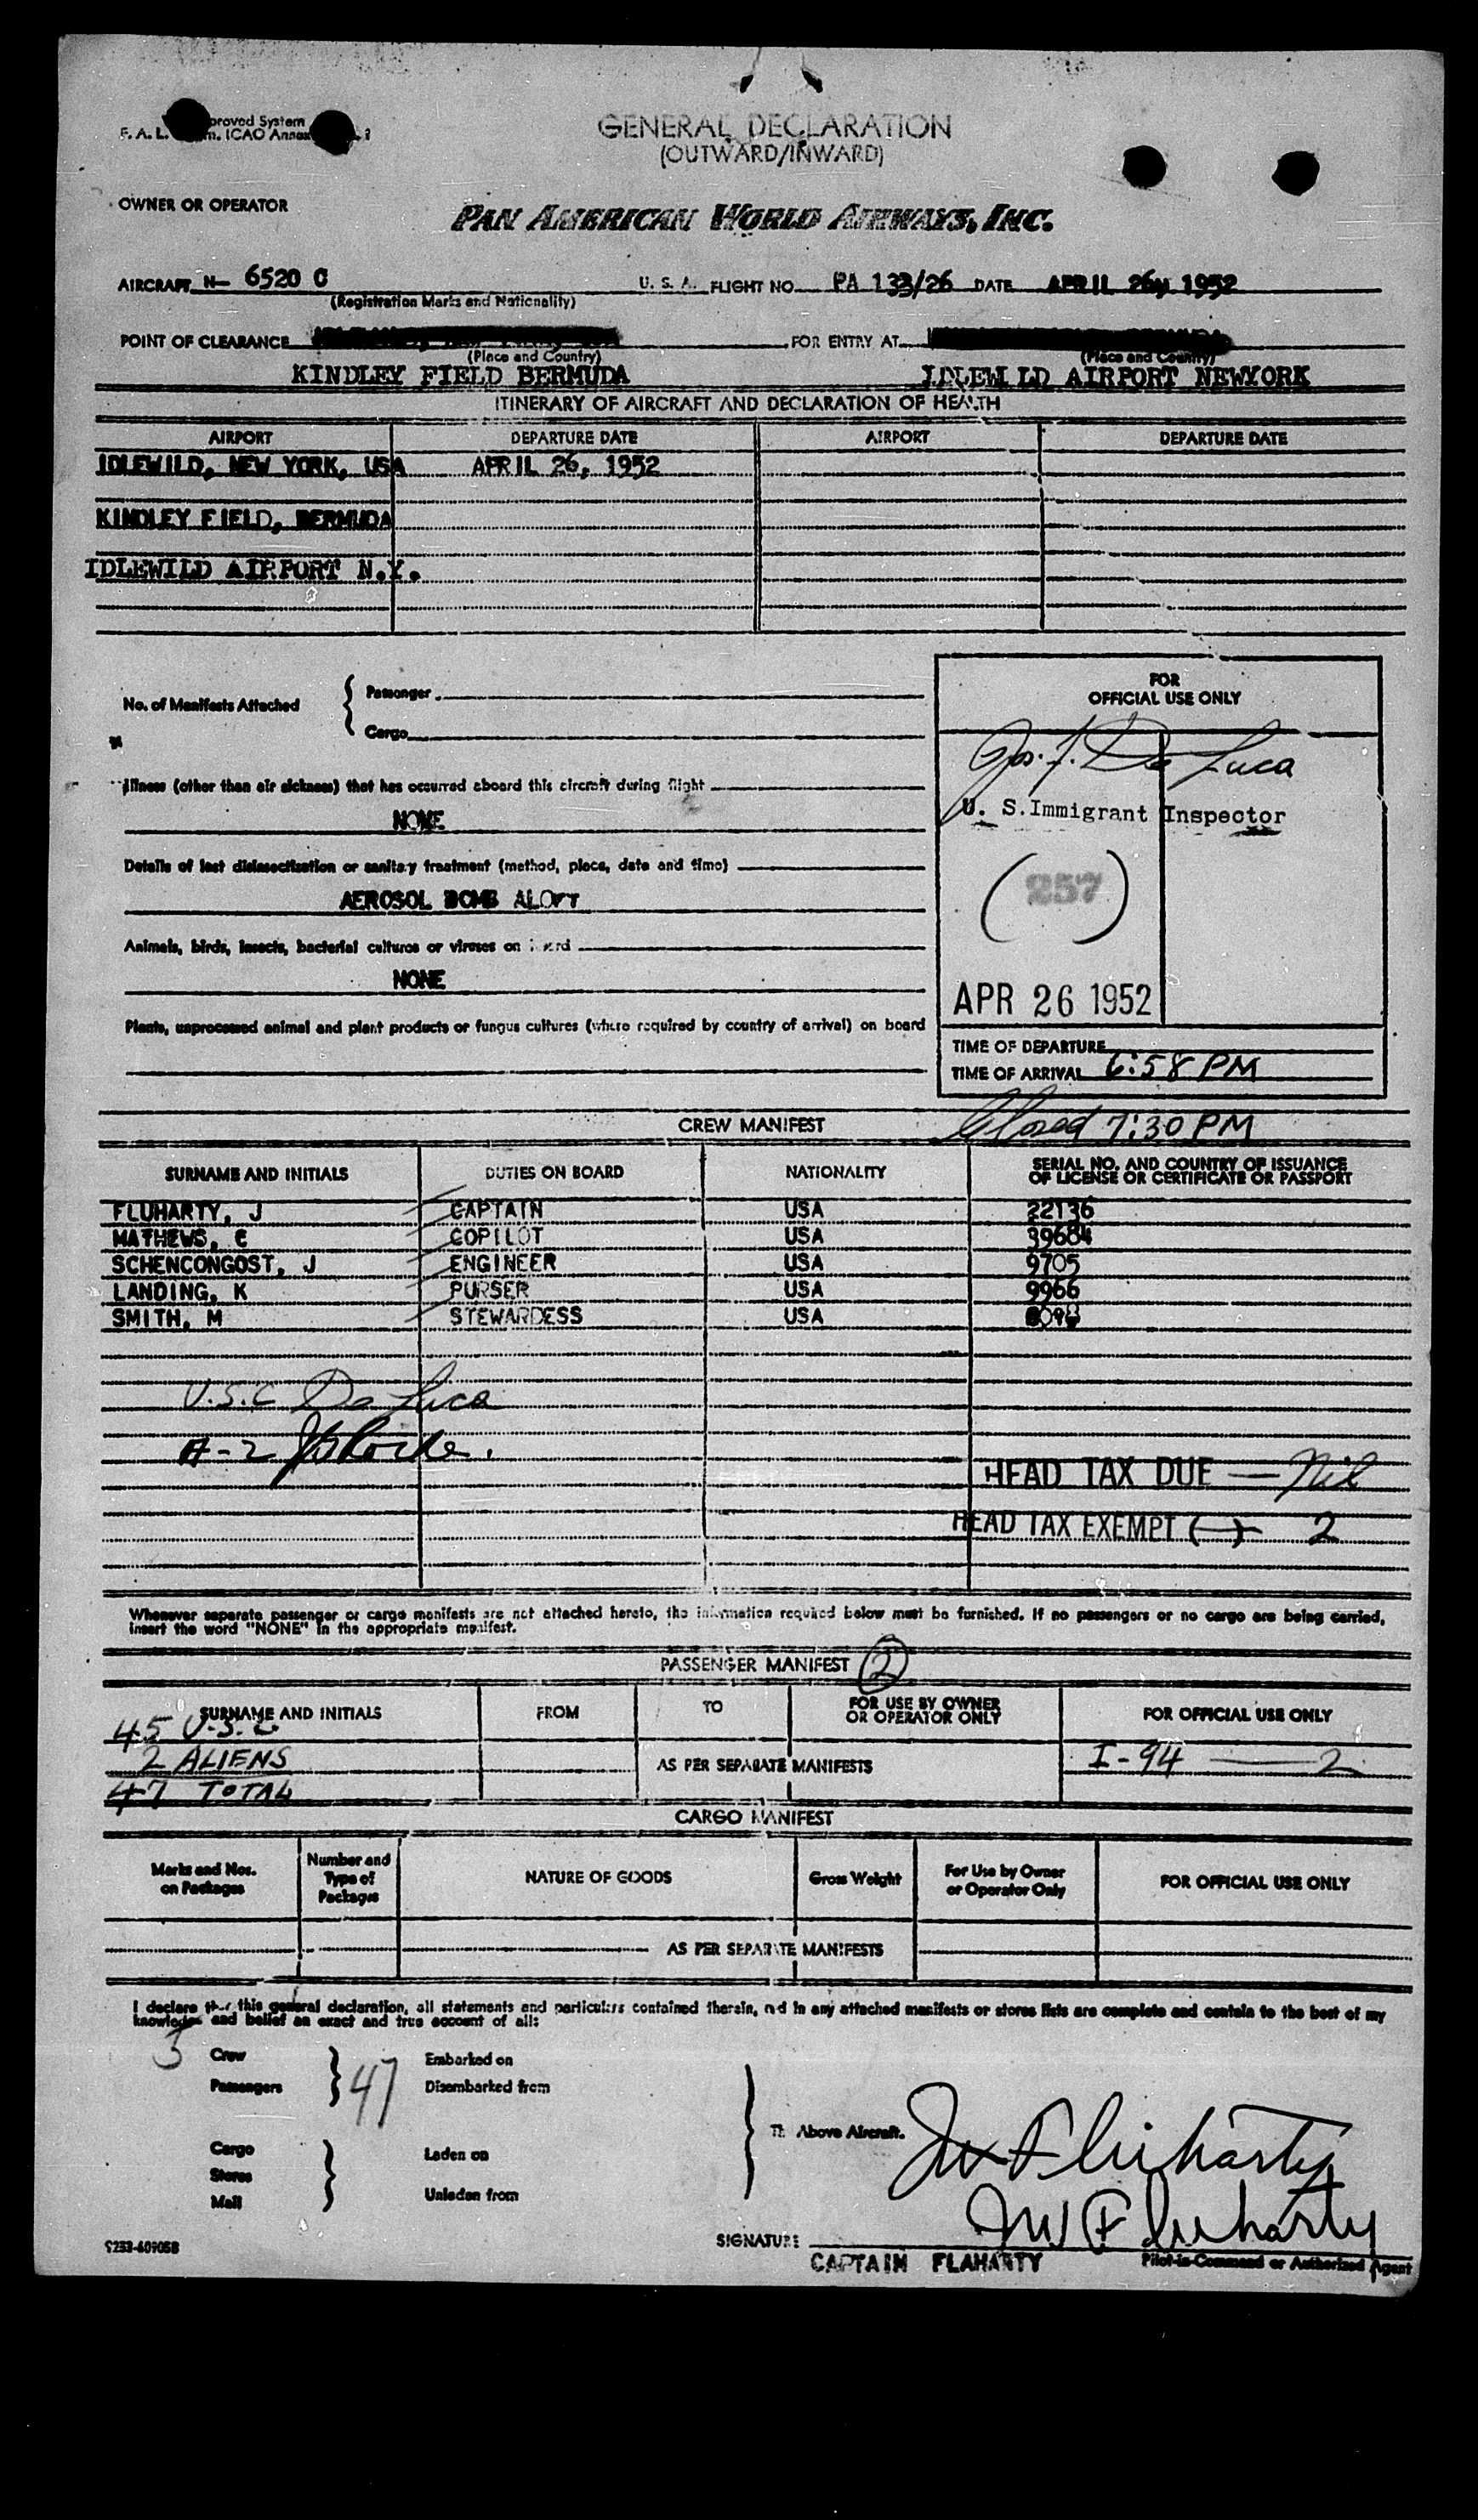 proved System
F. A. L. m. ICAO Annex
GENERAL DECLARATION
(OUTWARD/INWARD)
OWNER OR OPERATOR
PAN AMERICAN WORLD AIRWAYS, INC.
AIRCRAFT N- 6520 C U. S. A. FLIGHT NO. PA 133/26 DATE APRIL 26, 1952
(Registration Marks and Nationality)
POINT OF CLEARANCE FOR ENTRY AT
(Place and Country) (Place and Country)
KINDLEY FIELD BERMUDA IDLEWILD AIRPORT NEWYORK
ITINERARY OF AIRCRAFT AND DECLARATION OF HEALTH
AIRPORT DEPARTURE DATE AIRPORT DEPARTURE DATE
IDLEWILD, NEW YORK, USA APRIL 26, 1952
KINDLEY FIELD, BERMUDA
IDLEWILD AIRPORT N.Y.
No. of Manifests Attached
Passenger
Cargo
FOR
OFFICIAL USE ONLY
Jos. F. De Luca
U. S. Immigrant Inspector
(257)
APR 26 1952
TIME OF DEPARTURE
TIME OF ARRIVAL 6:58 PM
Illness (other than air sickness) that has occurred aboard this aircraft during flight
NONE
Details of last disinsectization or sanitary treatment (method, place, date and time)
AEROSOL BOMB ALOFT
Animals, birds, insects, bacterial cultures or viruses on board
NONE
Plants, unprocessed animal and plant products or fungus cultures (where required by country of arrival) on board
CREW MANIFEST Closed 7:30 PM
SURNAME AND INITIALS DUTIES ON BOARD NATIONALITY SERIAL NO. AND COUNTRY OF ISSUANCE
OF LICENSE OR CERTIFICATE OR PASSPORT
FLUHARTY, J CAPTAIN USA 22136
MATHEWS, C COPILOT USA 39684
SCHENCONGOST, J ENGINEER USA 9705
LANDING, K PURSER USA 9966
SMITH, M STEWARDESS USA
U.S.C De Luca
A-2
HEAD TAX DUE — Nil
HEAD TAX EXEMPT (—) 2
Whenever separate passenger or cargo manifests are not attached hereto, the information required below must be furnished. If no passengers or no cargo are being carried,
insert the word "NONE" in the appropriate manifest.
PASSENGER MANIFEST 2
SURNAME AND INITIALS FROM TO FOR USE BY OWNER
OR OPERATOR ONLY FOR OFFICIAL USE ONLY
45 U.S.C
2 ALIENS AS PER SEPARATE MANIFESTS I-94 — 2
47 TOTAL
CARGO MANIFEST
Marks and Nos.
on Packages
Number and
Type of
Packages
NATURE OF GOODS
Gross Weight
For Use by Owner
or Operator Only
FOR OFFICIAL USE ONLY
AS PER SEPARATE MANIFESTS
I declare that this general declaration, all statements and particulars contained therein, and in any attached manifests or stores lists are complete and contain to the best of my
knowledge and belief an exact and true account of all:
5 Crew
Passengers 47
Embarked on
Disembarked from
Cargo
Stores
Mail
Laden on
Unladen from
The Above Aircraft.
JW Fluharty
JW Fluharty
SIGNATURE
CAPTAIN FLAHARTY Pilot-in-Command or Authorized Agent